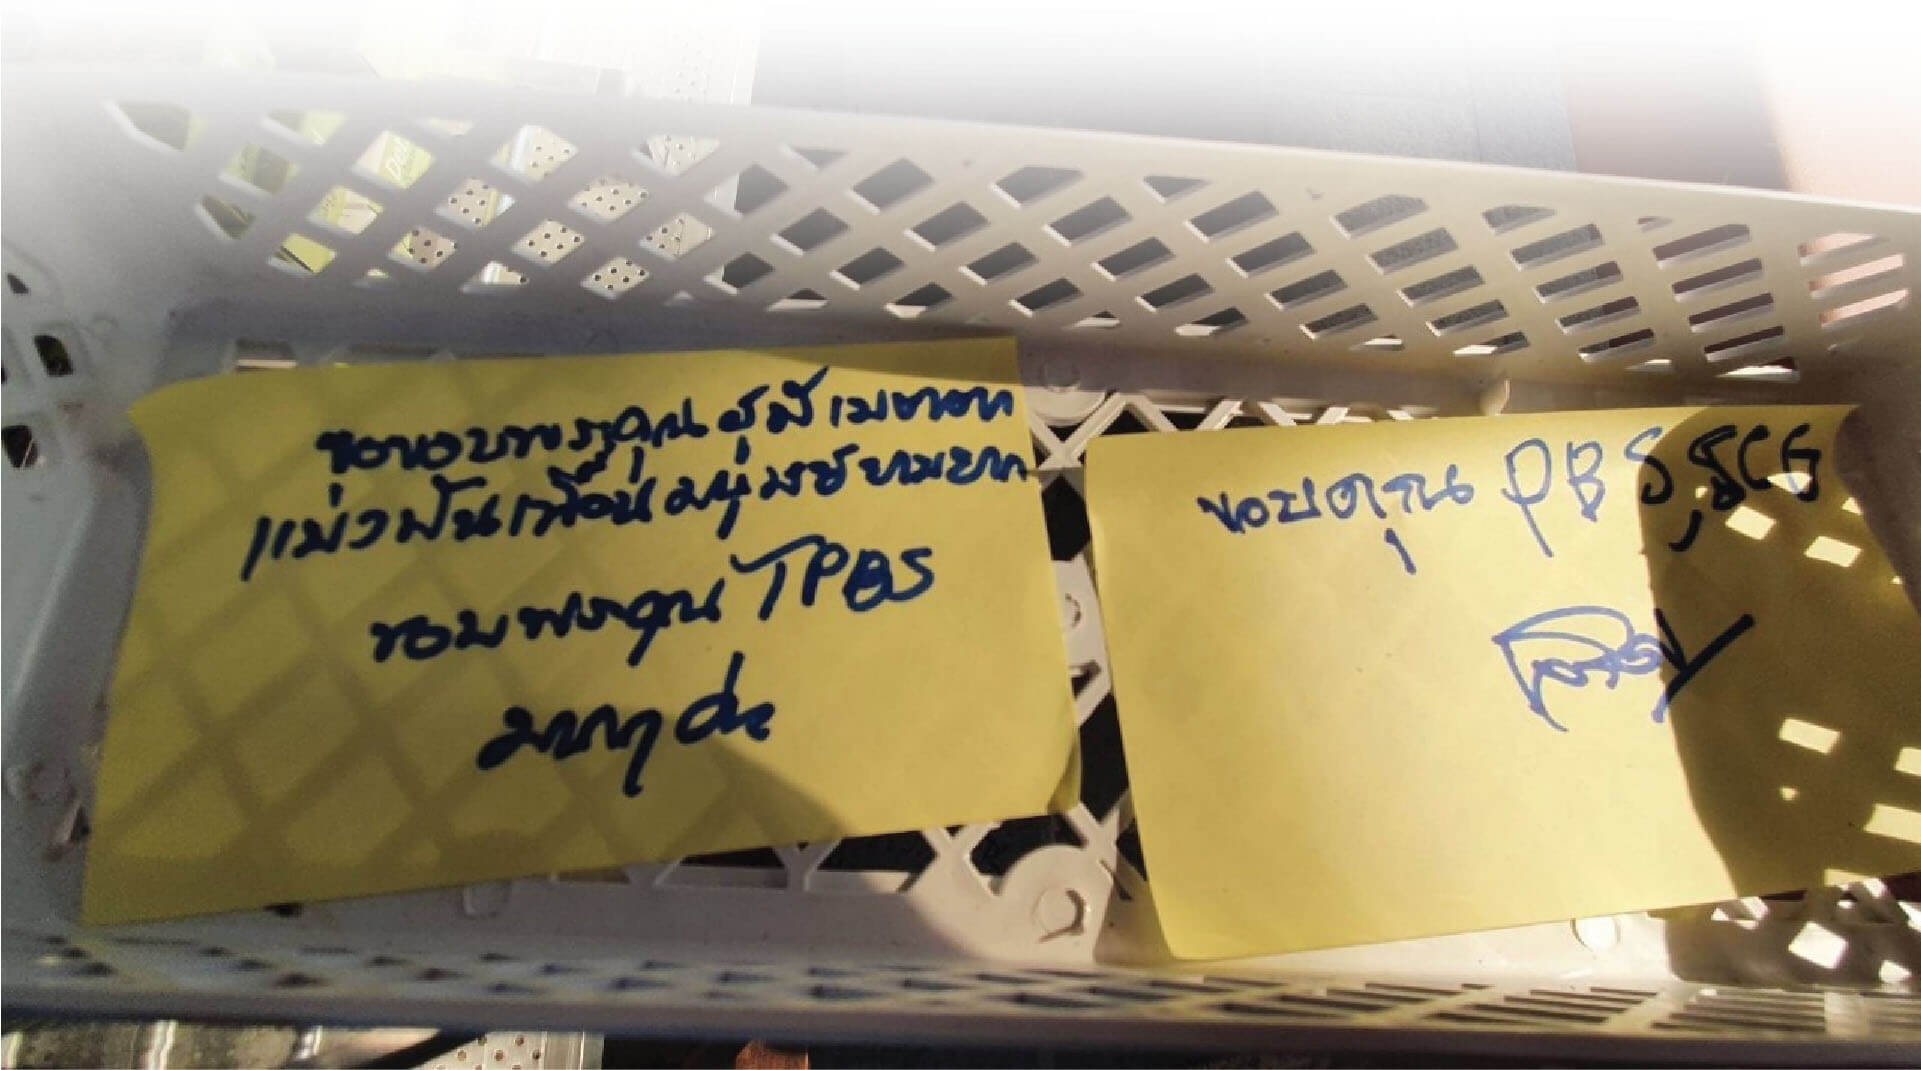 ขอขอบพระคุณผู้มีเมตตา
แบ่งปันเพื่อนมนุษย์ยามยาก
ขอบพระคุณ TPBS
มากๆ ค่ะ
ขอบคุณ PBS, SCG